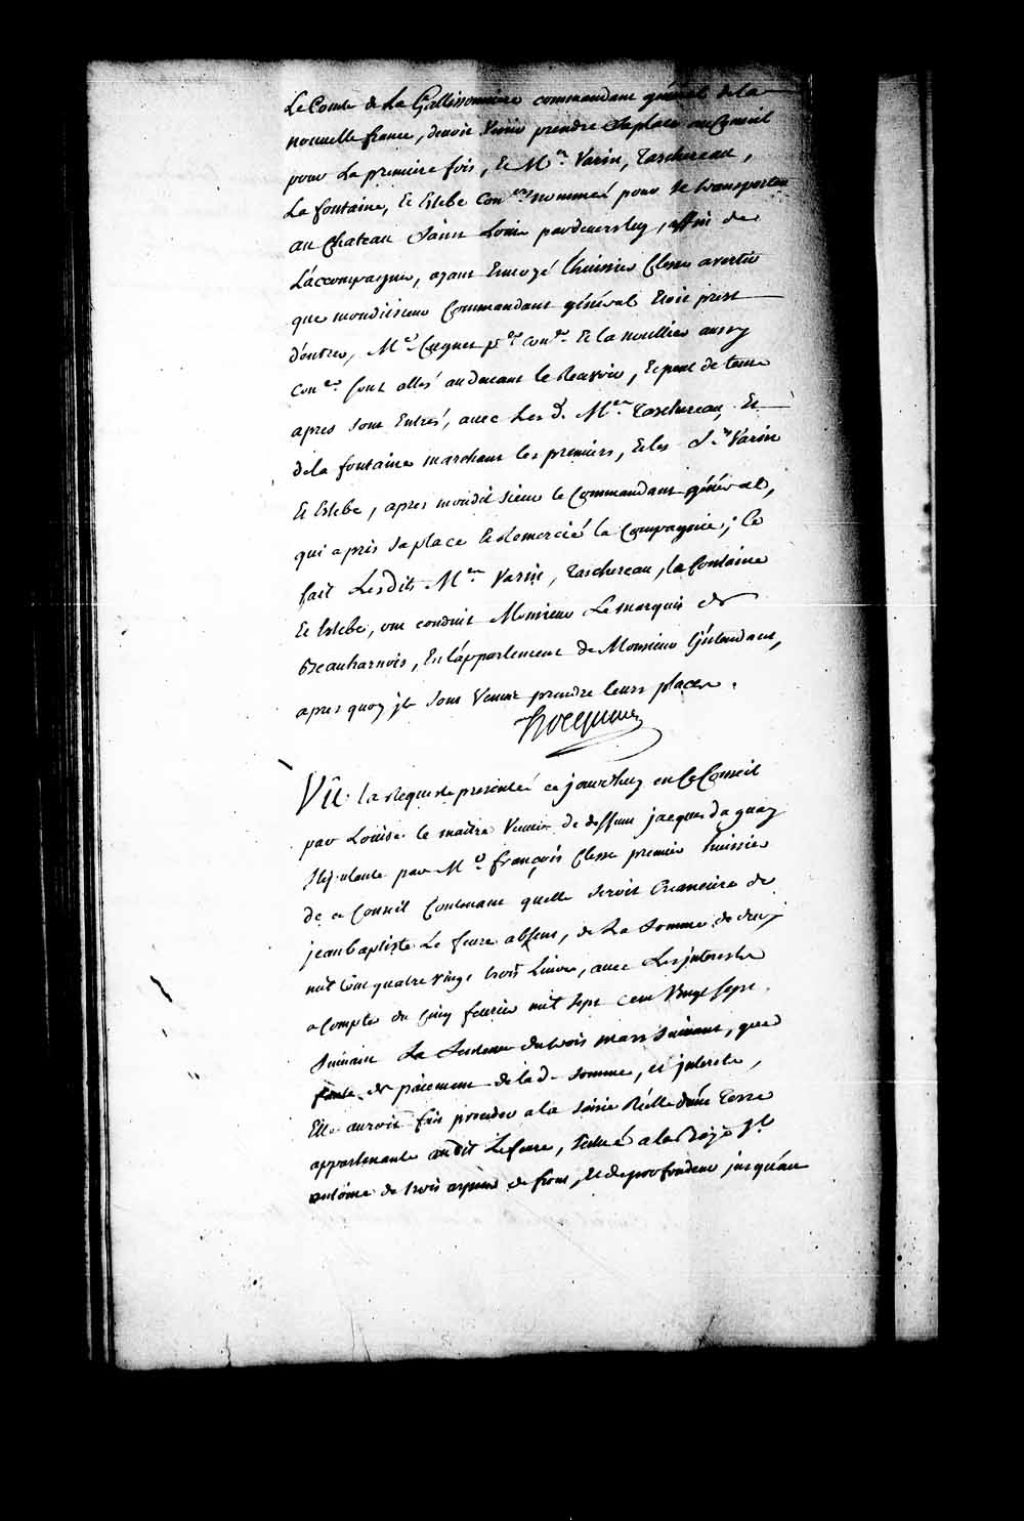 Le Comte de La Gallissonniere commandant général de la
nouvelle france, devoit Venir prendre Saplace au Conseil
pour La premiere fois, et Mrs. Varin, Taschereau,
La fontaine, Et Estebe Coners nommés pour se transporter
au Chateau Saint Louis pardevers luy, affin de
L'accompagner, ayant Envoyé l'huissier Clesse avertir
que mondit sieur Commandant général Etoit prest
d'entrer, Mrs. Cugnet pr. conr. Et la noullier aussy
Coner. sont allés audevant le Recevoir, Et peu de tems
apres sont Entrés, avec Les d. Mrs. Taschereau, Et
dela fontaine marchant les premiers, Et les Srs. Varin
Et Estebe, apres mondit sieur le Commandant général,
qui a pris sa place Et Remercié la Compagnie; Ce
fait Lesdits Mrs. Varin, Taschereau, la fontaine
Et Estebe, ont conduit Monsieur Le marquis de
Beauharnois, En l'appartement de Monsieur l'jntendant,
apres quoy jls sont Venus prendre leurs places.
Hocquart
Vû la Requeste presentée ce jourd'huy en Ce Conseil
par Louise le maitre Veuve de deffunt jacques daguay
stipulante par Me. françois Clesse premier huissier
de ce Conseil Contenant quelle seroit Creanciere de
jean baptiste Le fevre absent, de La Somme de deux
mil cent quatre vingt trois Livres, avec Les jnterests
a Compter du Cinq fevrier mil Sept Cent Vingt sept,
Suivant La Sentence du trois mars Suivant, que
faute de paiement de lad. somme, et jnterests,
Elle auroit fait proceder a la saisie Réelle d'une terre
appartenante audit Lefevre, située a la
antoine de trois arpens de front, et de profondeur jusqu'au